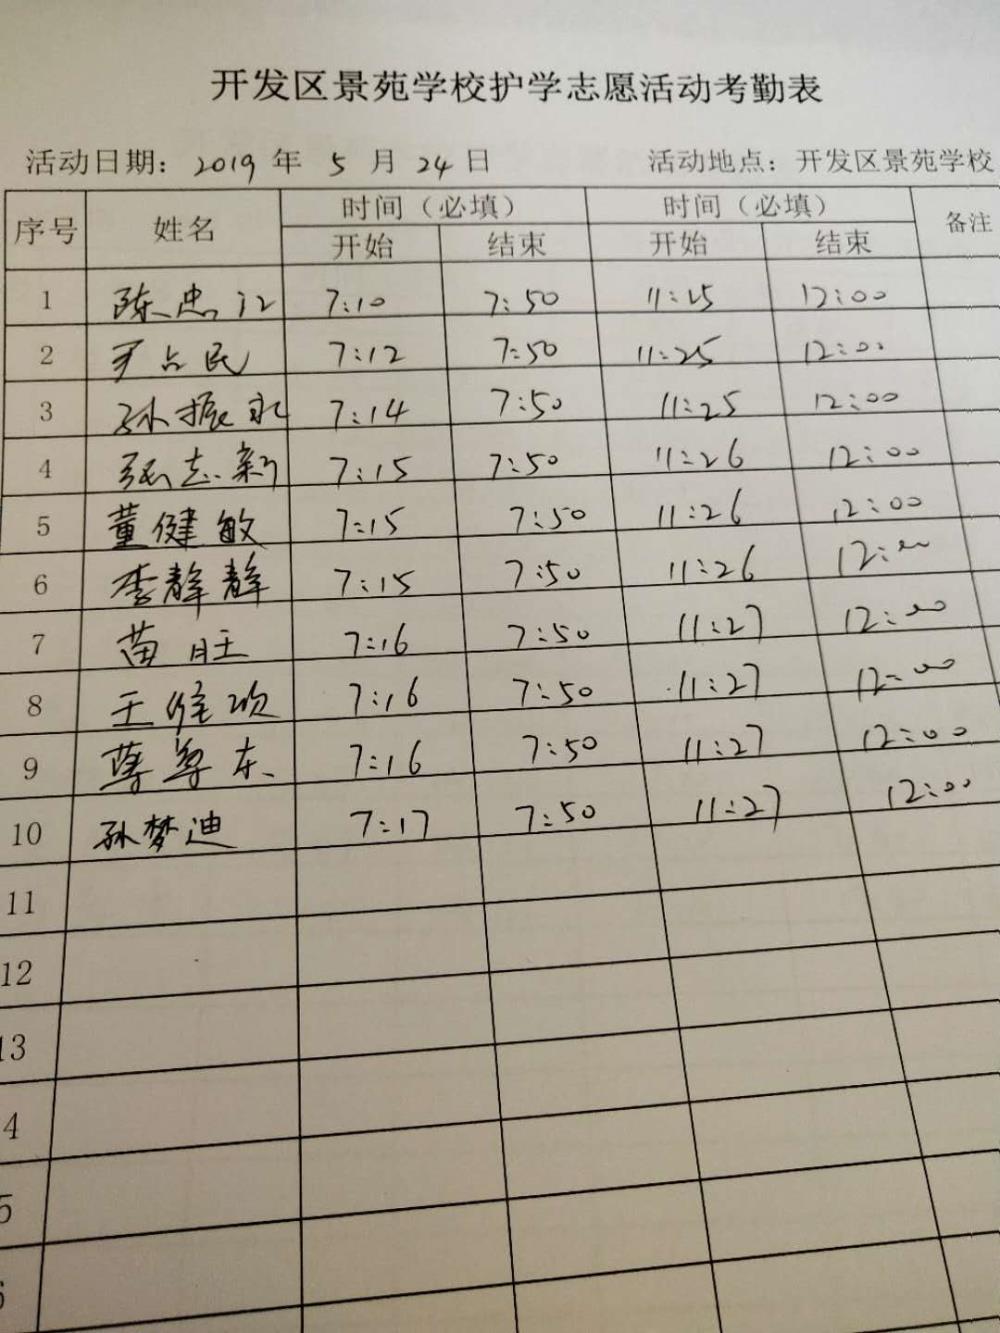 开发区景苑学校护学志愿活动考勤表
活动日期：2019年5月24日 活动地点：开发区景苑学校
序号 姓名 时间（必填） 时间（必填） 备注
开始 结束 开始 结束
1 陈忠江 7:10 7:50 11:25 12:00
2 占民 7:12 7:50 11:25 12:00
3 孙振永 7:14 7:50 11:25 12:00
4 张志新 7:15 7:50 11:26 12:00
5 董健敏 7:15 7:50 11:26 12:00
6 李静静 7:15 7:50 11:26 12:00
7 苗旺 7:16 7:50 11:27 12:00
8 王 7:16 7:50 11:27 12:00
9 东 7:16 7:50 11:27 12:00
10 孙梦迪 7:17 7:50 11:27 12:00
11
12
13
4
5